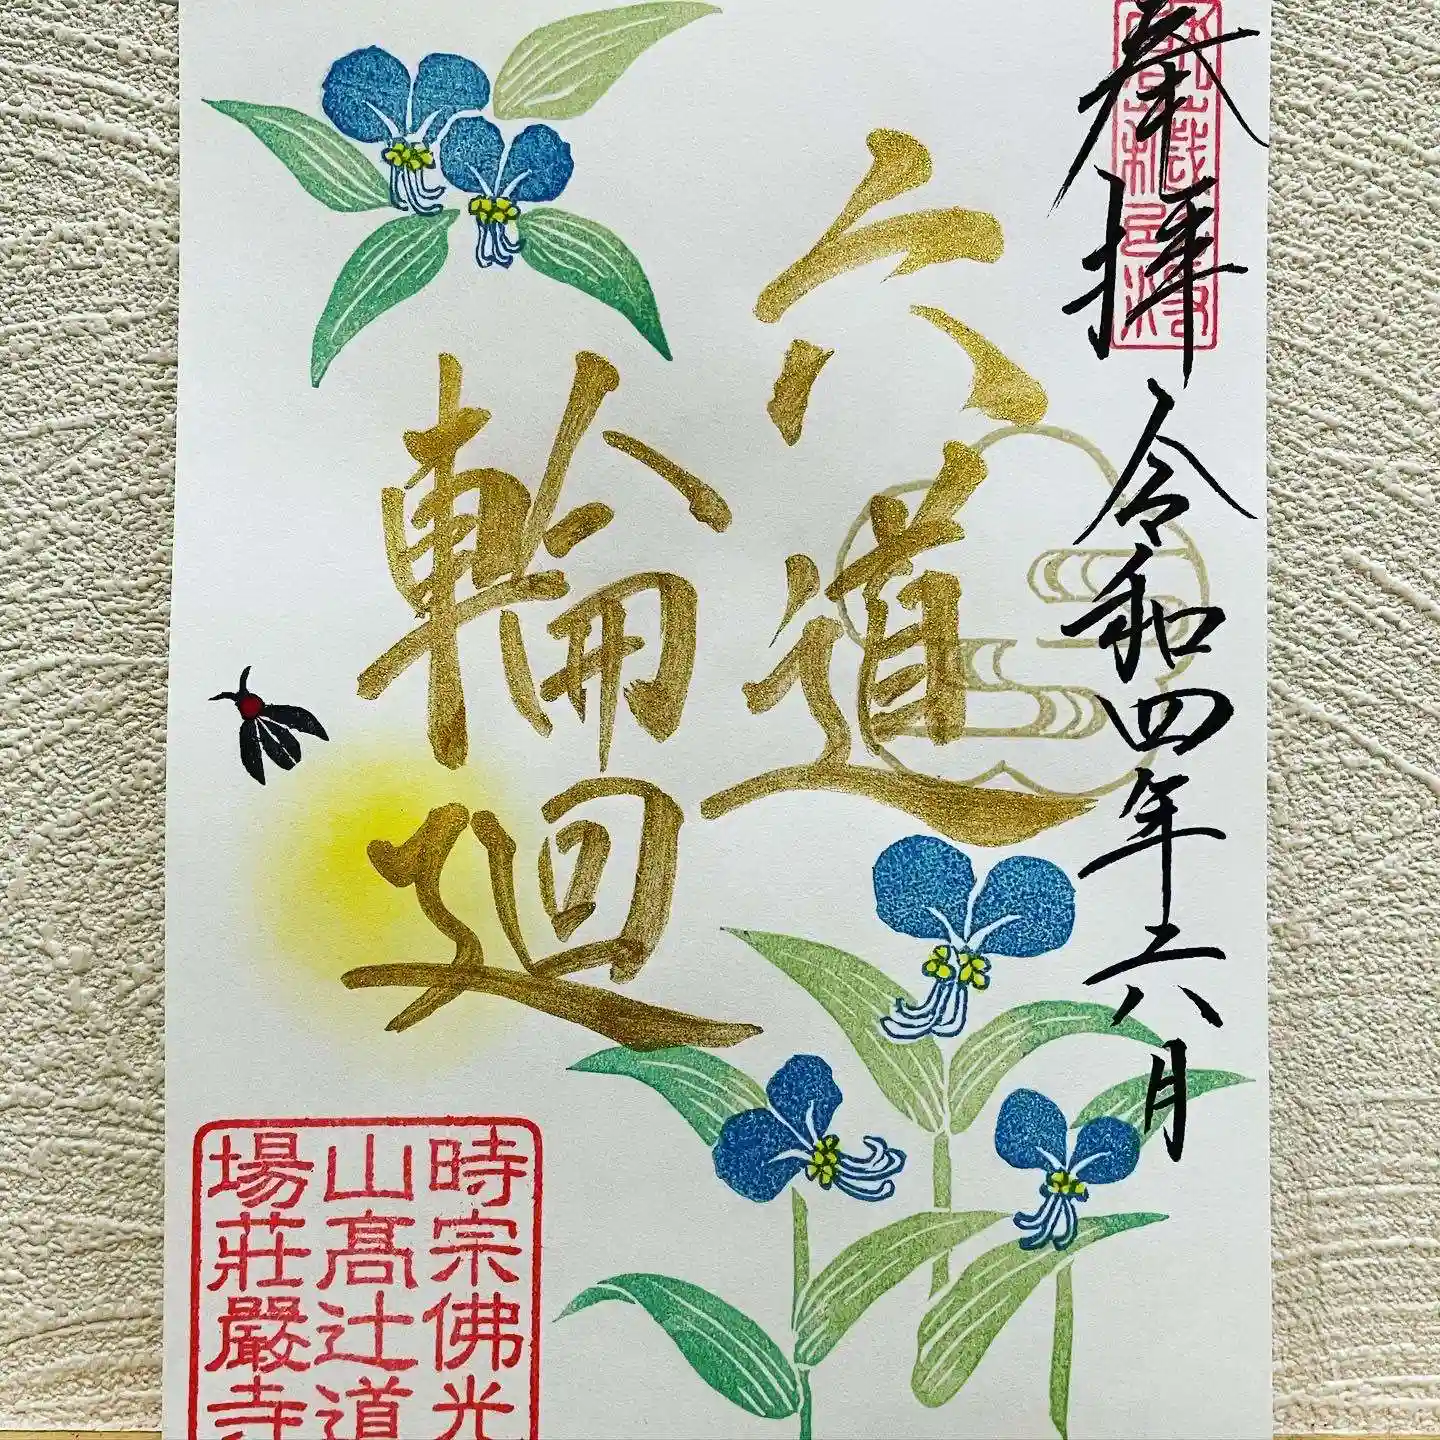 奉拝
令和四年六月
六道
輪廻
時宗佛光
山高辻道
場荘嚴寺